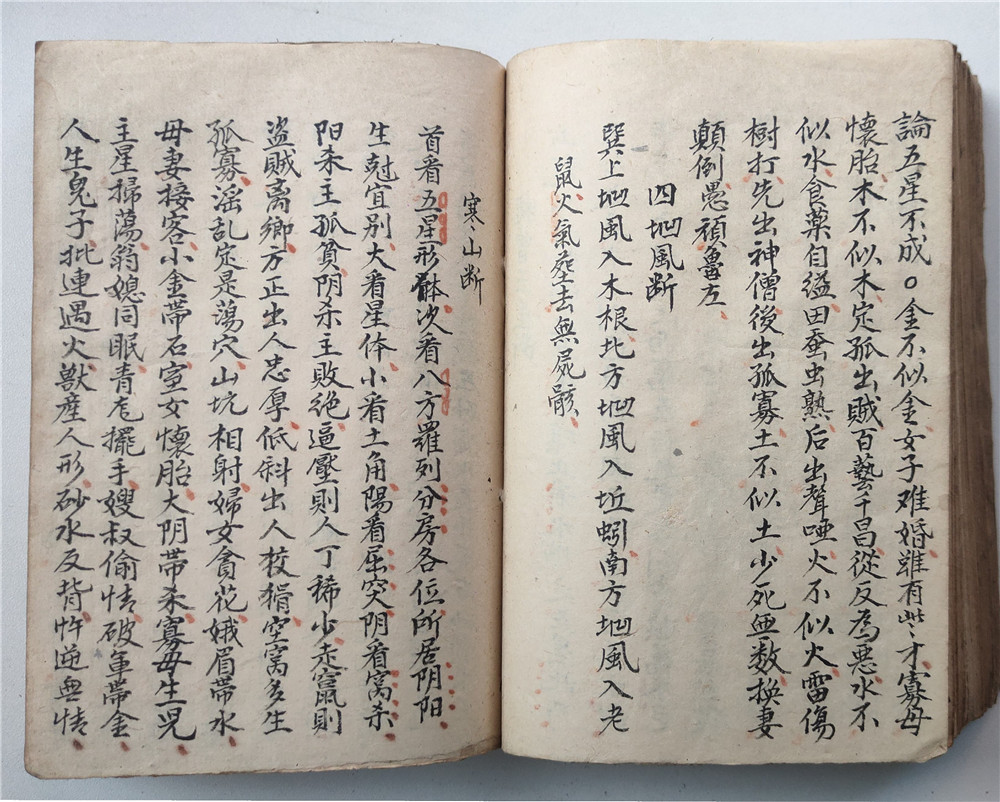 論五星不成〇金不似金女子难婚雖有些才寡母
懷胎木不似木定孤出賊百藝千昌從反為悪水不
似水食藥自縊田蚕虫熟后出聲啞火不似火雷傷
樹打先出神僧後出孤寡土不似土少死無数換妻
顛倒愚頑魯左
四凹風断
巽上凹風入木根北方凹風入坵蚓南方凹風入老
鼠火氣塟去無屍骸
寒山断
首看五星形體次看八方羅列分房各位所居阴阳
生尅宜别大看星体小看土角陽看屈突阴看窩杀
阳杀主孤貧阴杀主敗絶逼壓則人丁稀少走竄則
盜賊离鄉方正出人忠厚低斜出人狡猾空窩多生
孤寡滛乱定是蕩穴山坑相射婦女貪花娥眉帶水
毋妻接客小金帶石室女懷胎大阴帶杀寡毋生児
主星掃蕩翁媳同眠青龙擺手嫂叔偷情破軍帶金
人生鬼子批連遇火獸產人形砂水反背忤逆無情